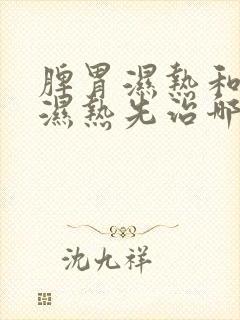 脾胃濕熱和
濕熱先治哪
沈九祥